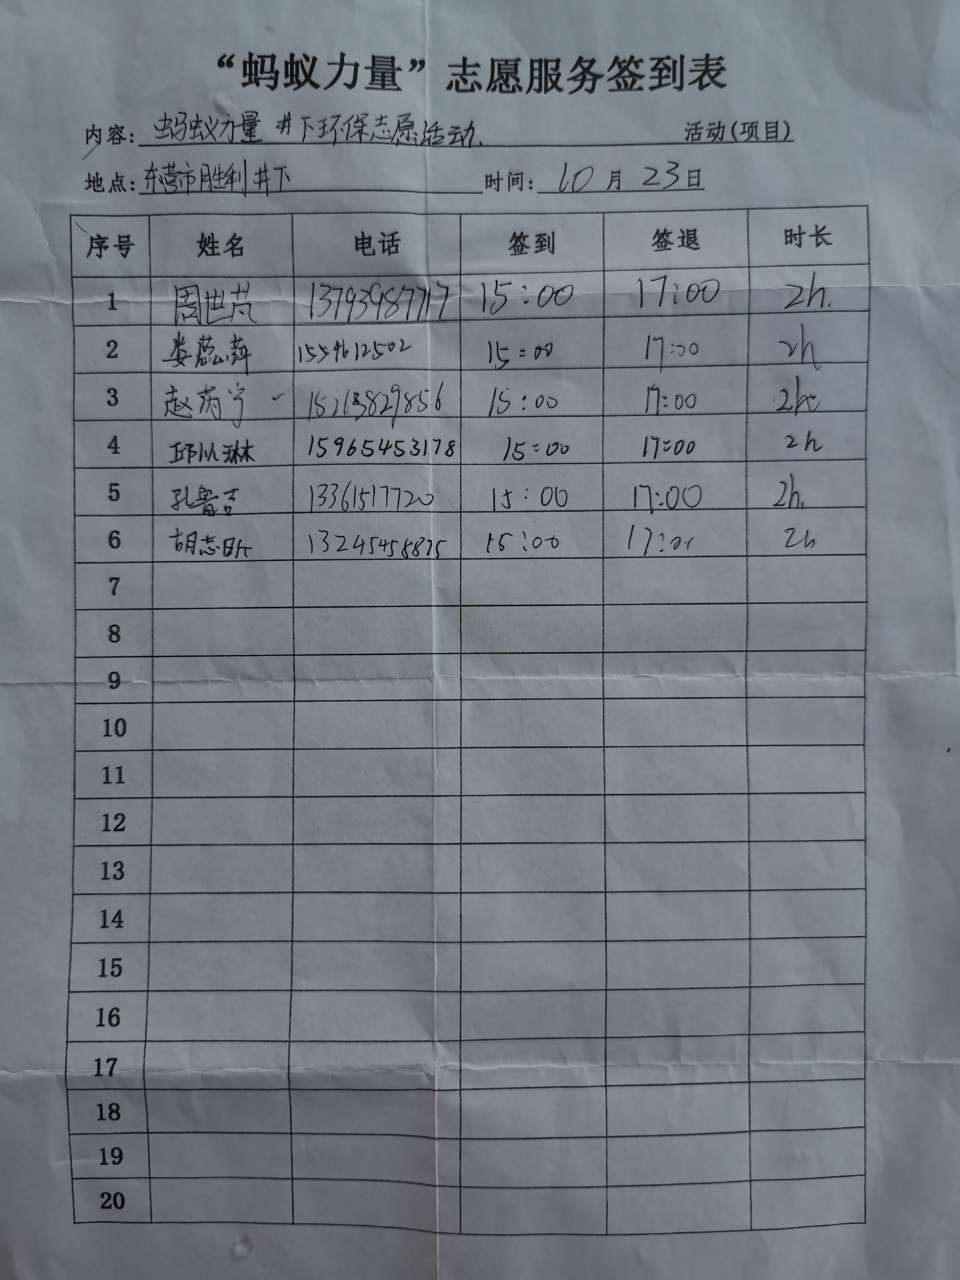 “蚂蚁力量”志愿服务签到表
内容：蚂蚁力量 井下环保志愿活动. 活动(项目)
地点：东营市胜利井下 时间：10月23日
序号 姓名 电话 签到 签退 时长
1 周世芃 13793987717 15:00 17:00 2h.
2 娄蕊萍 15:00 17:00 2h
3 赵芮宁 15:00 17:00
4 邱以琳 15965453178 15:00 17:00 2h
5 孔鲁吉 13361517720 15:00 17:00 2h.
6 胡志昕 13245458875 15:00 17:00 2h
7
8
9
10
11
12
13
14
15
16
17
18
19
20